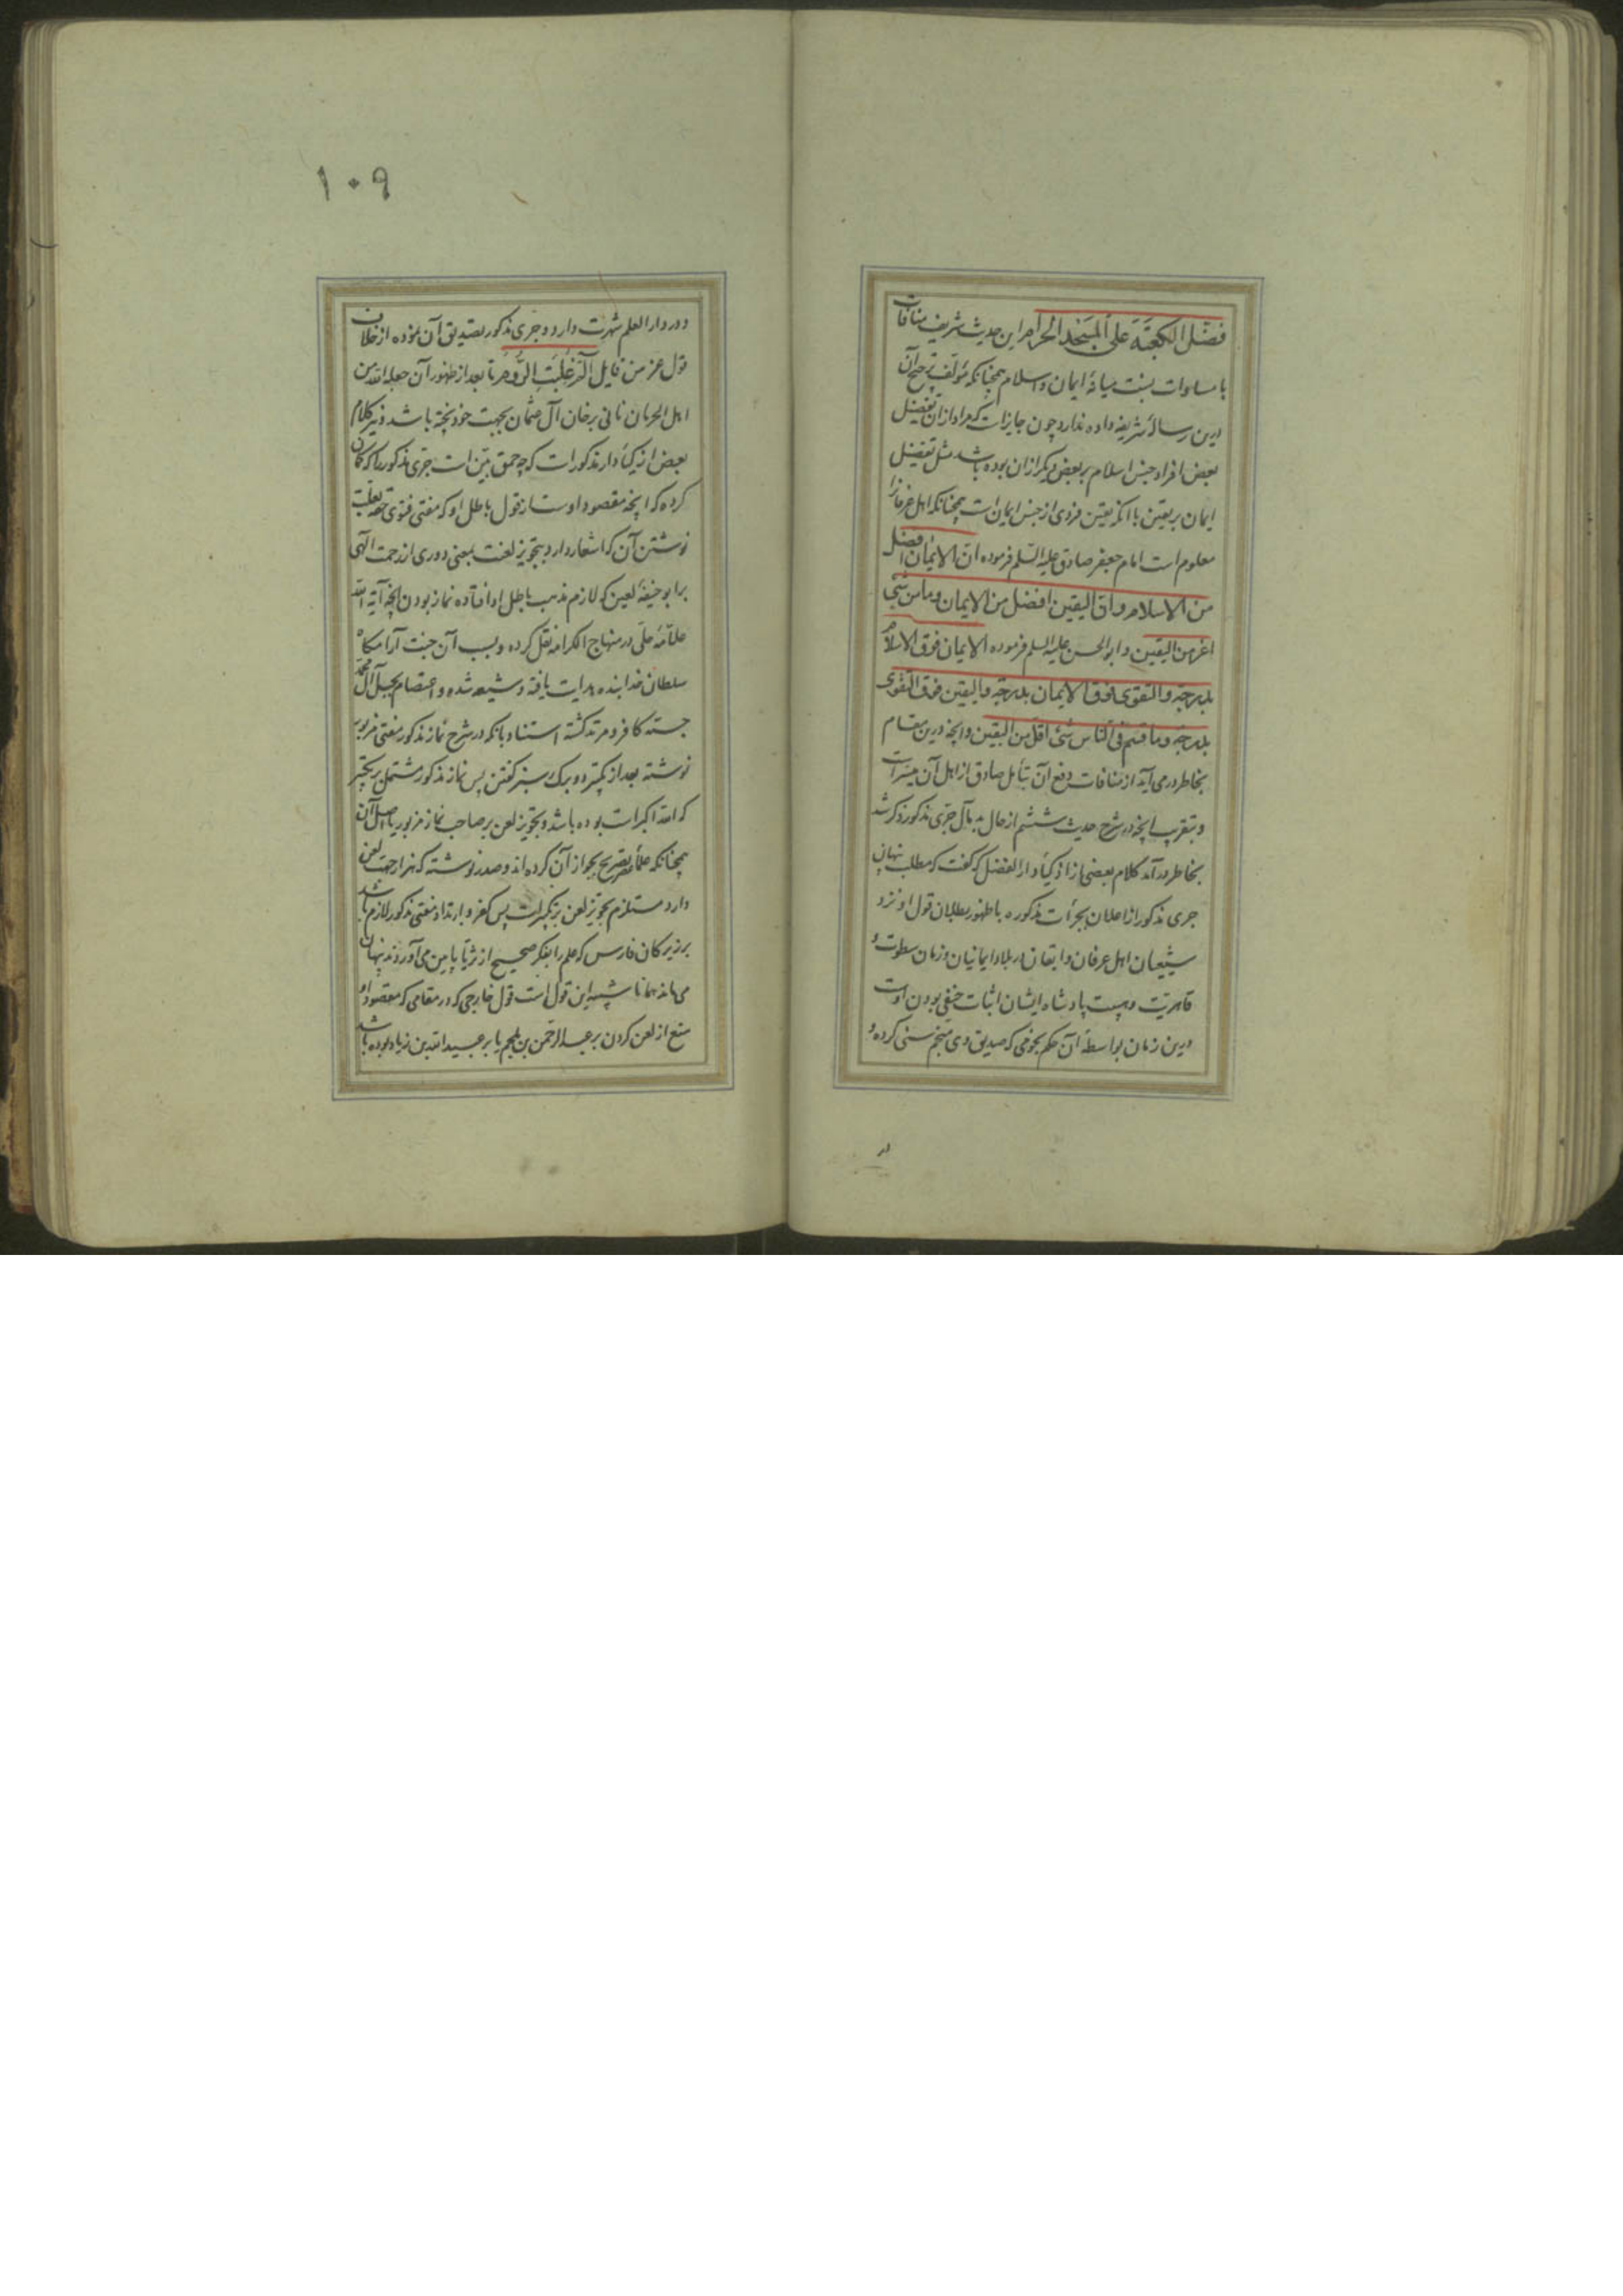 فضل الکعبة علی المسجد الحرام این حدیث شریف منافات
با مساوات نسبت میانهٔ ایمان و اسلام همچنانکه مؤلف ترجیح آن
درین رسالهٔ شریفه داده ندارد چون جایزاست که مراد ازان تفضیل
بعض افراد جنس اسلام بر بعض دیگر ازان بوده باشد مثل تفضیل
ایمان بر یقین با آنکه یقین فردی از جنس ایمان است همچنانکه اهل عرفانرا
معلوم است امام جعفر صادق علیه السلم فرموده ان الایمان افضل
من الاسلام و ان الیقین افضل من الایمان وما من شیء
اعز من الیقین و ابو الحسن علیه السلم فرموده الایمان فوق الاسلام
بدرجة والتقوی فوق الایمان بدرجة والیقین فوق التقوی
بدرجة وما قسم فی الناس شیء اقل من الیقین و آنچه درین مقام
بخاطر درمی آید از منافات دفع آن بتأمل صادق از اهل آن میسراست
و بتقریب آنچه در شرح حدیث ششم از حال بد مآل جری مذکور ذکر شد
بخاطر درآمد کلام بعضی از اذکیاء دار الفضل که گفت که مطلب پنهان
جری مذکور از اعلان بجرأت مذکوره با ظهور بطلان قول او نزد
شیعیان اهل عرفان و ایقان در بلاد ایمانیان و زمان سطوت و
قاهریت و هیبت پادشاه ایشان اثبات حنفی بودن اوست
درین زمان بواسطهٔ آن حکم نجومی که صدیق وی منجم سنی کرده و
در
۱۰۹
و در دار العلم شهرت دارد و جری مذکور تصدیق آن نموده از خلاف
قول عز من قایل الم غلبت الروم تا بعد از ظهور آن جعله الله من
اهل الحرمان نانی بر خوان آل عثمان بجهت خود پخته باشد و نیز کلام
بعض اذکیاء دار مذکور است که چه حمق بین است جری مذکور را که گمان
کرده که آنچه مقصود اوست از قول باطل او که مفتی فتوی حقه بعلت
نوشتن آن که اشعار دارد بتجویز لعنت بمعنی دوری از رحمت الهی
بر ابو حنیفهٔ لعین که لازم مذهب باطل او افتاده نماز بودن آنچه آیة الله
علامهٔ حلی در منهاج الکرامه نقل کرده و بسبب آن جنت آرامگاه
سلطان خدابنده هدایت یافته و شیعه شده و اعتصام بحبل آل محمد
جسته کافر و مرتد گشته استناد بانکه در شرح نماز مذکور مفتی مزبور
نوشته بعد از و دو برک سبز گفتن پس نماز مذکور مشتمل بر تکبیر
که الله اکبر است بوده باشد و تجویز لعن بر صاحب نماز مزبور یا اصل آن
همچنانکه علما تصریح بجواز آن کرده اند و صدر نوشته که هزار جهت لعن
دارد مستلزم تجویز لعن بر تکبیر است پس کفر و ارتداد مفتی مذکور لازم باشد
بر زیرکان فارس که علم را بفکر صحیح از ثریا پایین می آورند پنهان
می ماند همانا شبیه این قول است قول خارجی که در مقامی که مقصود او
منع از لعن کردن بر عبد الرحمن بن ملجم یا بر عبید الله بن زیاد بوده باشد